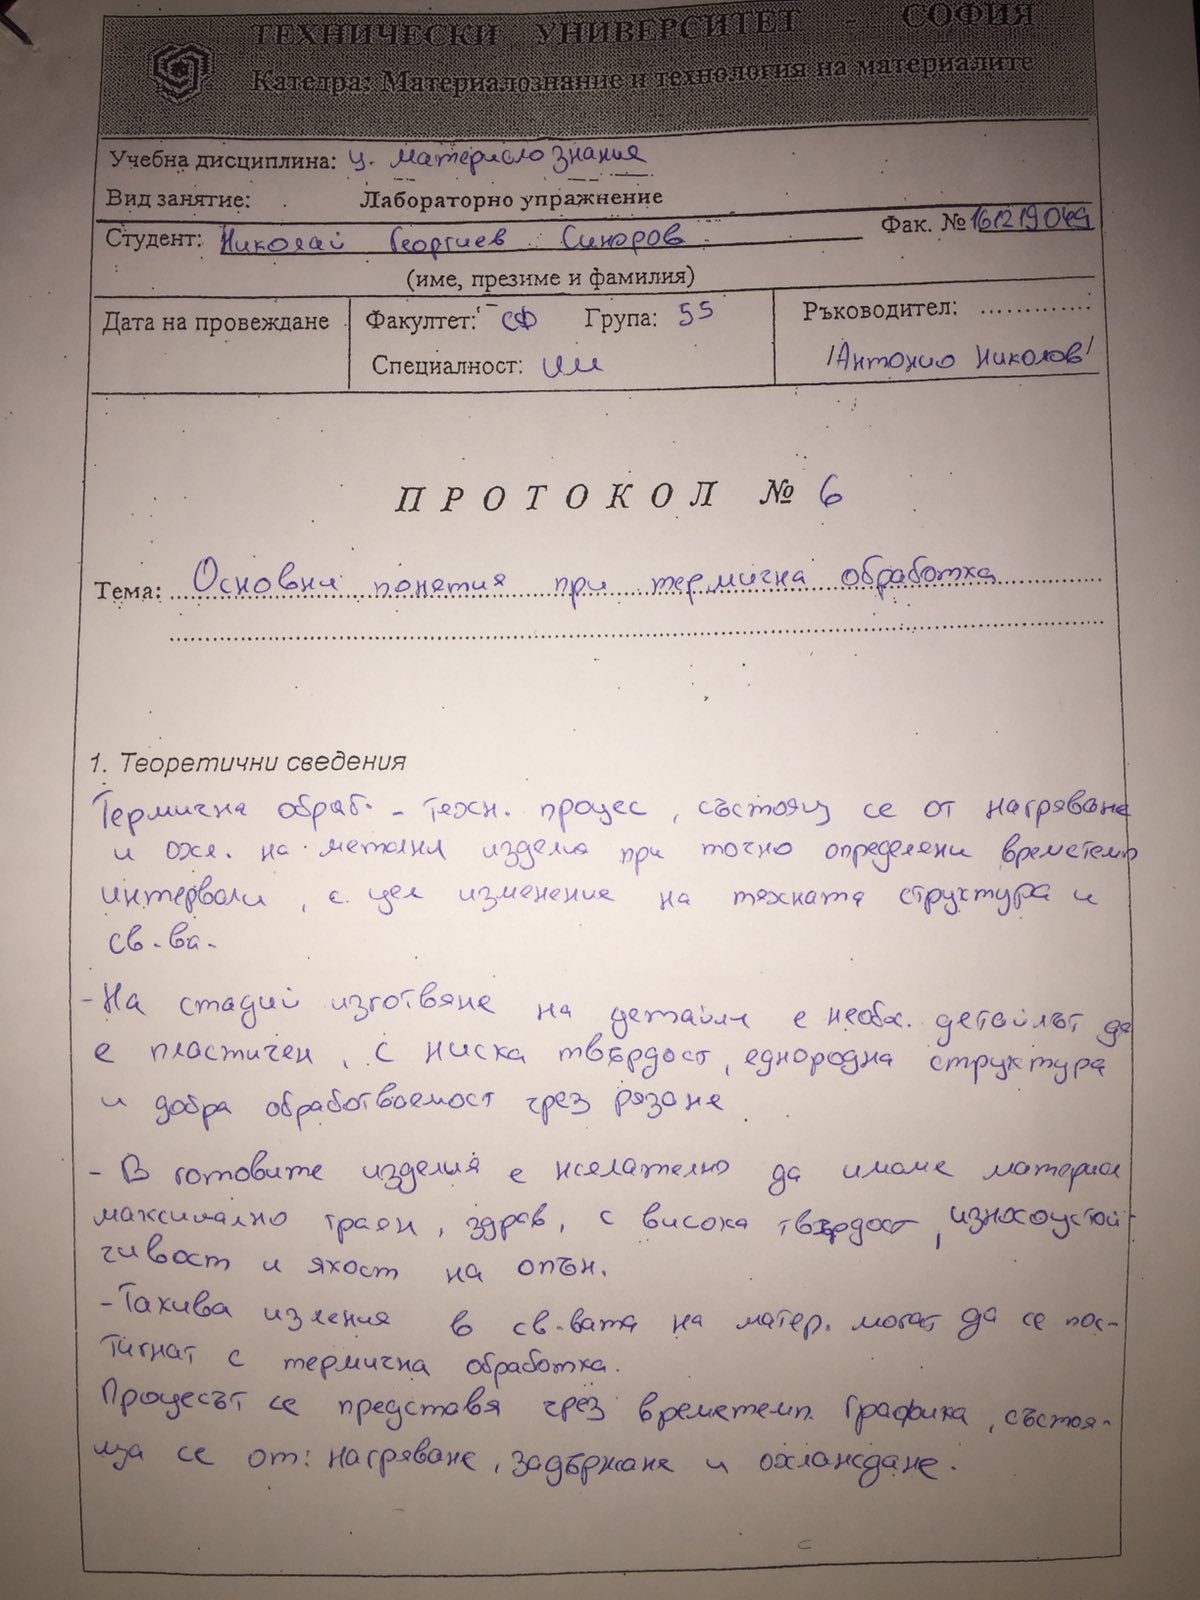 ТЕХНИЧЕСКИ УНИВЕРСИТЕТ - СОФИЯ
Катедра: Материалознание и технология на материалите
Учебна дисциплина: ц. материалознания
Вид занятие: Лабораторно упражнение
Студент: Николай Георгиев Синоров Фак. № 161219049
(име, презиме и фамилия)
Дата на провеждане Факултет: СФ Група: 55 Ръководител: ..............
Специалност: ИИ /Антонио Николов/
ПРОТОКОЛ № 6
Тема: Основни понятия при термична обработка
1. Теоретични сведения
Термична обраб. - техн. процес, състоящ се от нагряване
и охл. на метални изделия при точно определени времетемп
интервали, с цел изменение на тяхната структура и
св-ва.
- На стадий изготвяне на детайли е необх. детайлът да
е пластичен, с ниска твърдост, еднородна структура
и добра обработваемост чрез рязане
- В готовите изделия е желателно да имаме материал
максимално траен, здрав, с висока твърдост, износоустой-
чивост и якост на опън.
- Такива измения в св-вата на матер. могат да се пос-
тигнат с термична обработка.
Процесът се представя чрез времетемп. графика, състоя-
ща се от: нагряване, задържане и охлаждане.